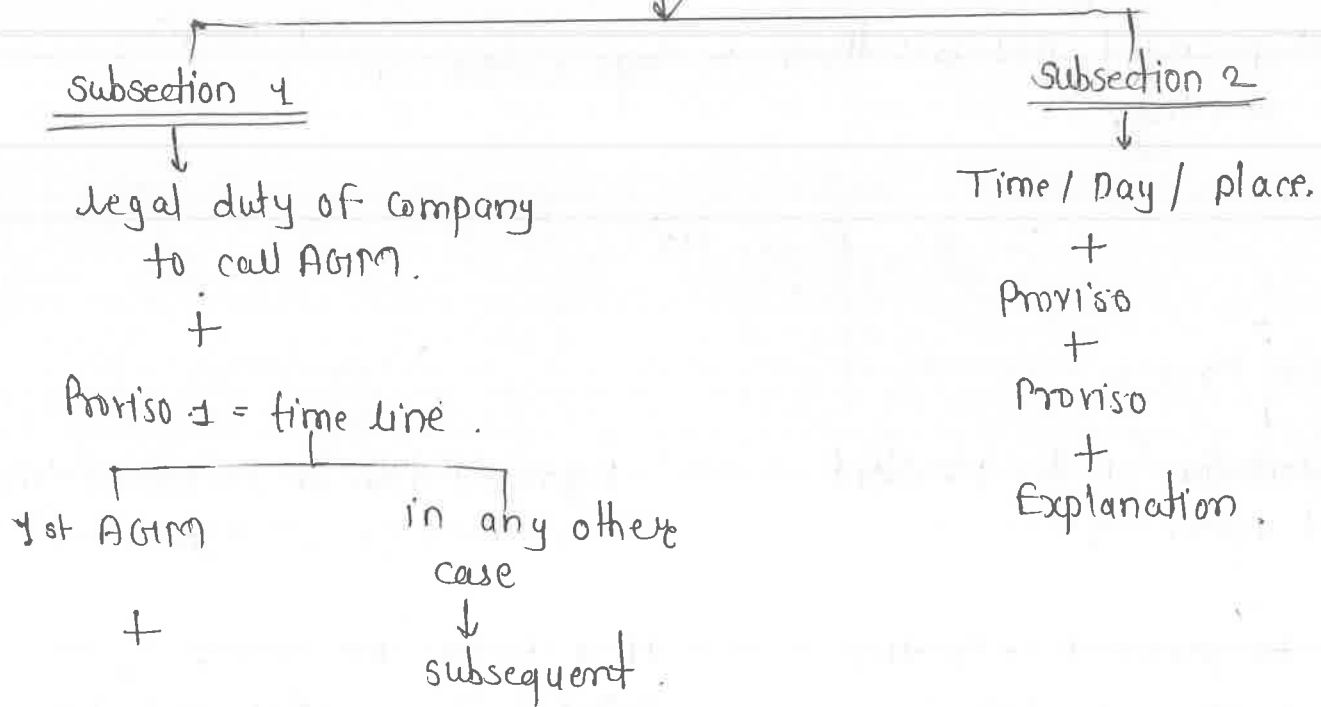 subsection 1
legal duty of company
to call AGM.
+
Proviso 1 = time line.
1st AGM
in any other
case
↓
+
subsequent.
subsection 2
Time / Day / place.
+
Proviso
+
Proviso
+
Explanation.